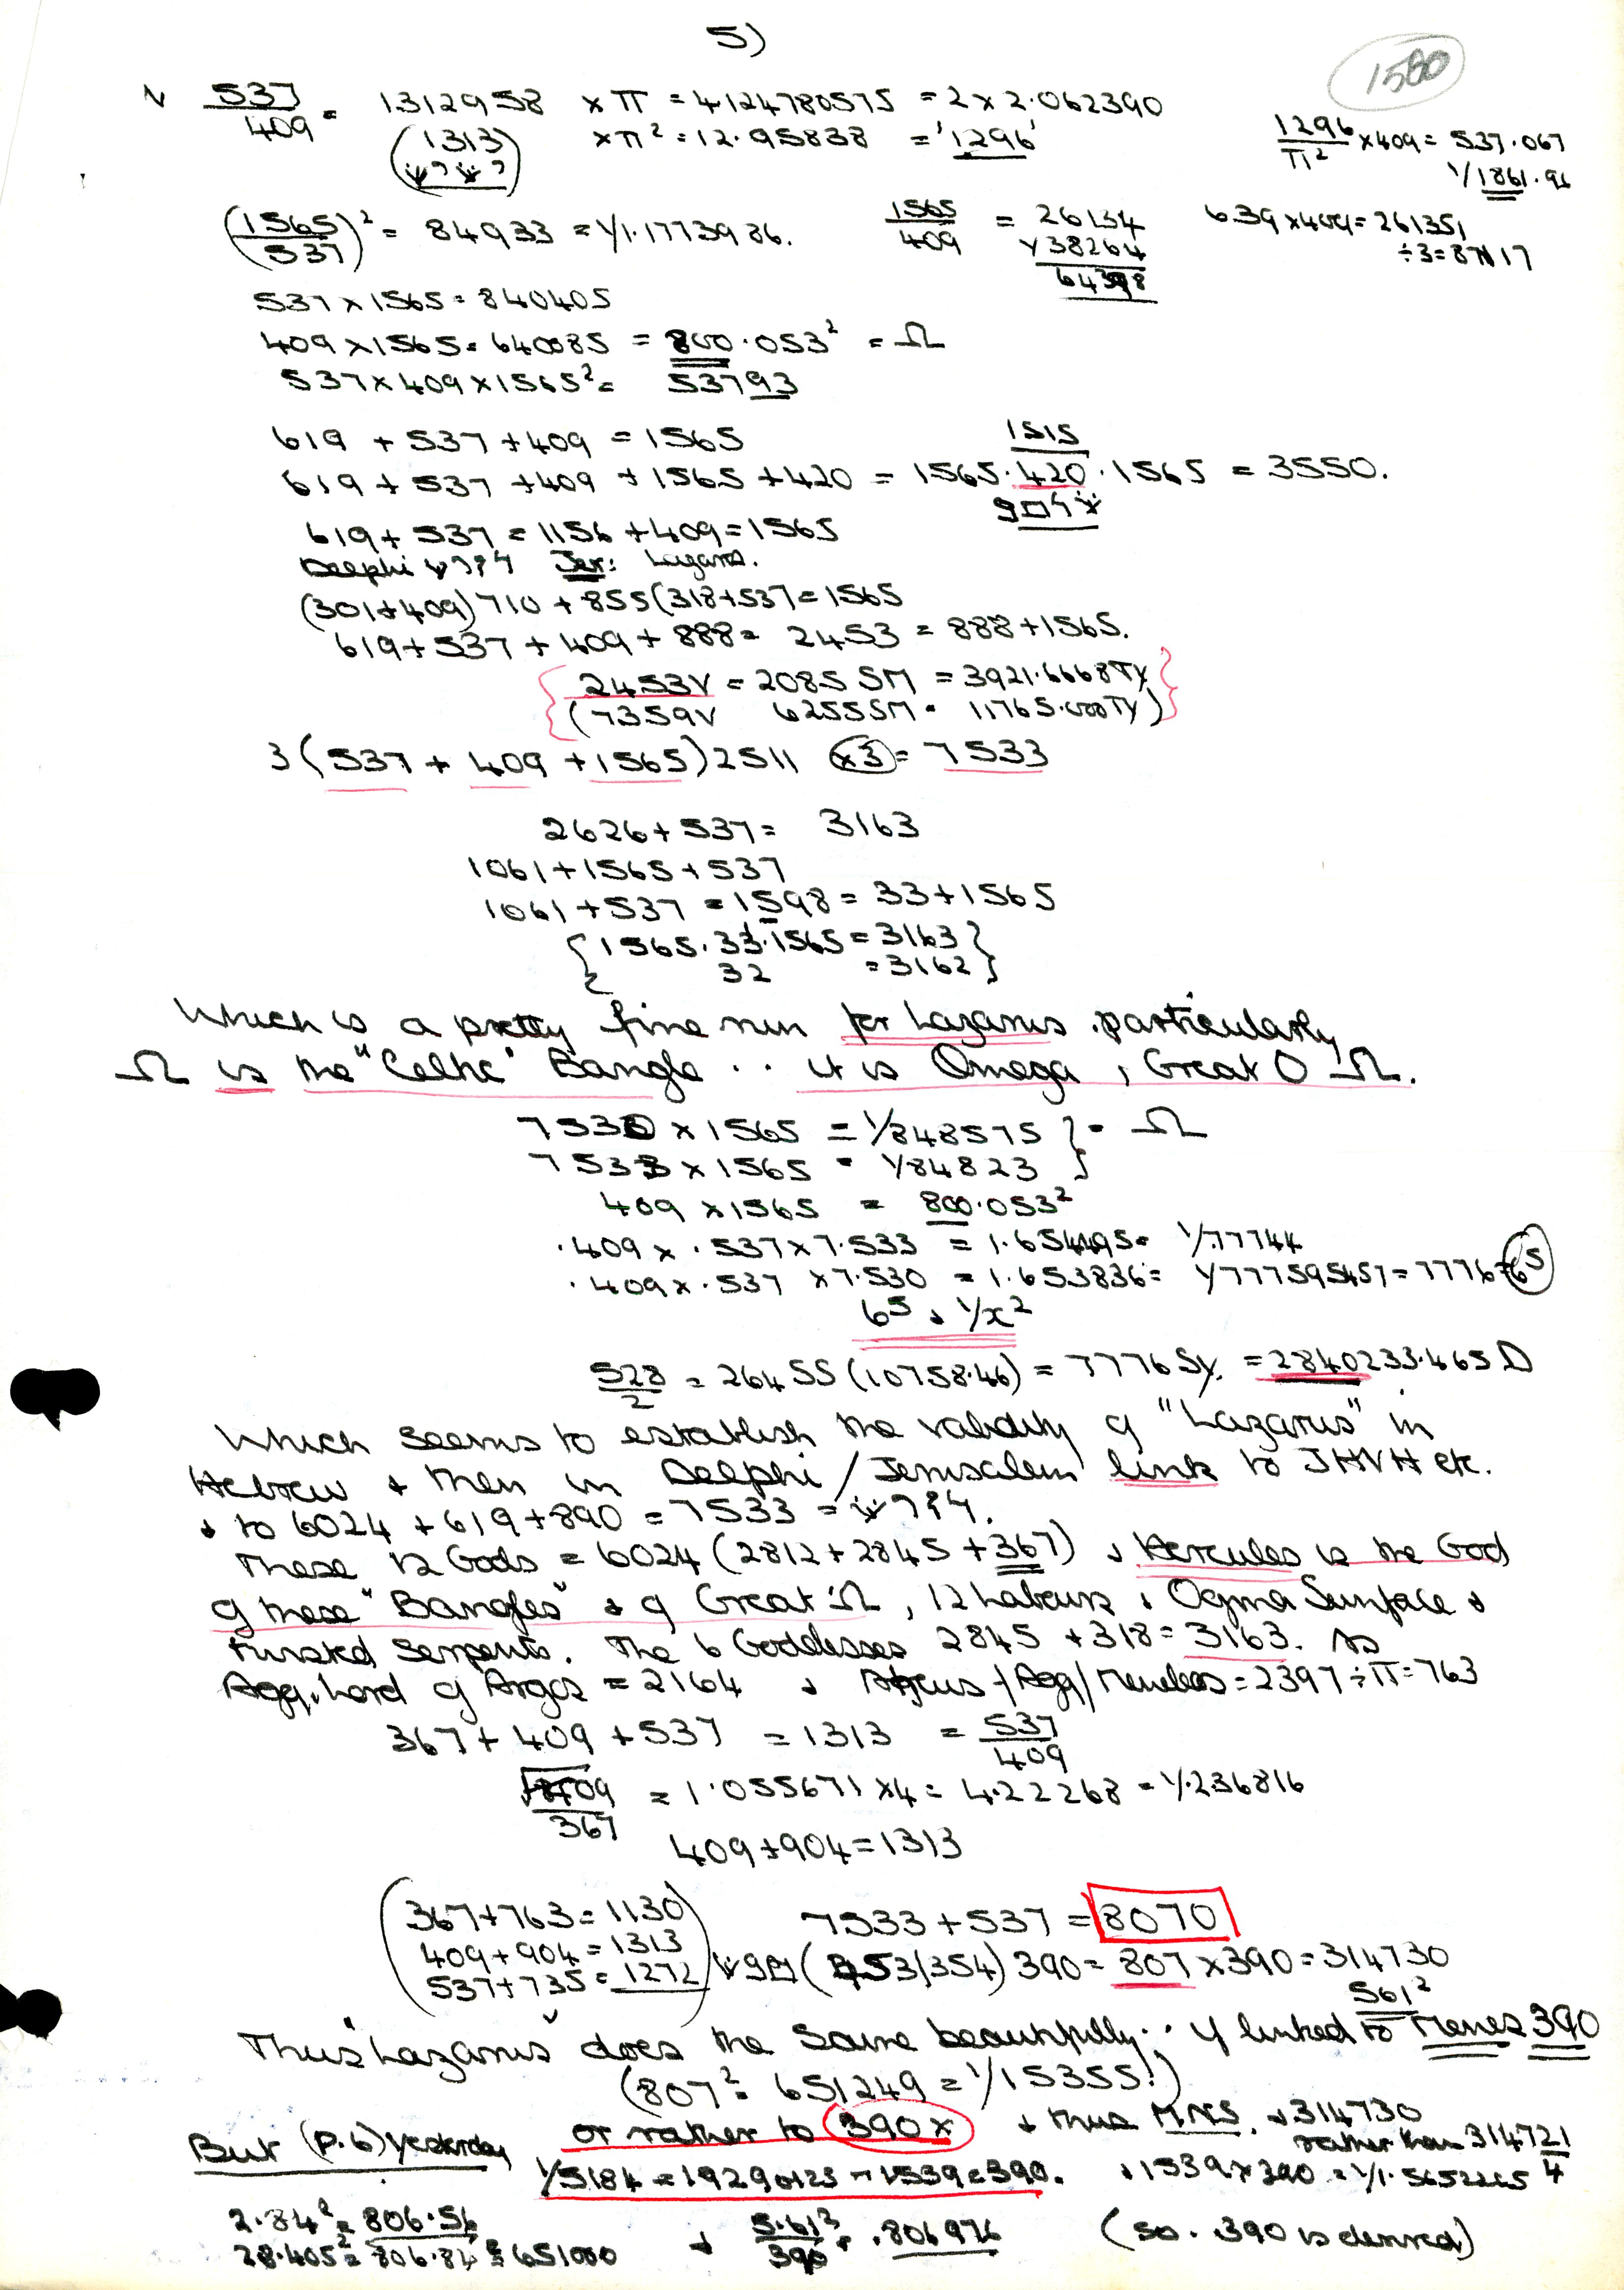 5)
1580
537/409 = 1312958 × π = 4124780575 = 2 × 2.062390
(1313) × π² = 12.95838 = '1296'
1296/π² × 409 = 537.067
1/1861.96
(1565/537)² = 84933 = 1/1.1773986.
1565/409 = 26134
38264
64398
6.39 × 409 = 261351
÷ 3 = 87117
537 × 1565 = 840405
409 × 1565 = 640085 = 800.053² = Ω
537 × 409 × 1565² = 53793
619 + 537 + 409 = 1565
1515
619 + 537 + 409 + 1565 + 420 = 1565.420.1565 = 3550.
619 + 537 = 1156 + 409 = 1565
Delphi Jer: Lazarus.
(301+409) 710 + 855 (318+537 = 1565
619 + 537 + 409 + 888 = 2453 = 888 + 1565.
{2453V = 2085 SM = 3921.6668 TY}
(7359V 6255SM = 11765.000TY)
3 (537 + 409 + 1565) 2511 ×3 = 7533
2626 + 537 = 3163
1061 + 1565 + 537
1061 + 537 = 1598 = 33 + 1565
{1565.33.1565 = 3163}
32 = 3162
Which is a pretty fine run for Lazarus. particularly
Ω is the "Celtic" Bangle .. it is Omega, Great O Ω.
7530 × 1565 = 1/848575 } = Ω
7533 × 1565 = 1/84823
409 × 1565 = 800.053²
.409 × .537 × 7.533 = 1.654495 = 1/.77744
.409 × .537 × 7.530 = 1.653836 = 1/777595457 = 7776 = 6⁵
6⁵ & 1/x²
528/2 = 264 SS (10758.46) = 7776 SY. = 2840233.465 D
Which seems to establish the validity of "Lazarus" in
Hebrew & then in Delphi / Jerusalem link to JHVH etc.
& to 6024 + 619 + 890 = 7533 =
These 12 Gods = 6024 (2812 + 2845 + 367) & Hercules is the God
of these "Bangles" & of Great Ω, 12 Labours & Ogma Sunface &
twisted serpents. The 6 Goddesses 2845 + 318 = 3163. As
Agg. Lord of Argos = 2164 & Atreus / Agg / Menelaos = 2397 ÷ π = 763
367 + 409 + 537 = 1313 = 537/409
409/367 = 1.055671 × 4 = 4.22268 = 1/.236816
409 + 904 = 1313
(367 + 763 = 1130)
409 + 904 = 1313
537 + 735 = 1272
7533 + 537 = 8070
(453/354) 390 = 807 × 390 = 314730
561²
Thus "Lazarus" does the same beautifully .. if linked to Menes 390
(807² = 651249 = 1/15355!)
or rather to 390 × & thus MNS. & 314730
rather than 314721
4
But (p.6) yesterday
1/5184 = 19290123 - 1539 = 390. & 1539 × 390 = 1/1.5652265
2.84² = 806.56
28.405² = 806.84 = 651000
& 5.61²/390 = .806976 (so .390 is desired)